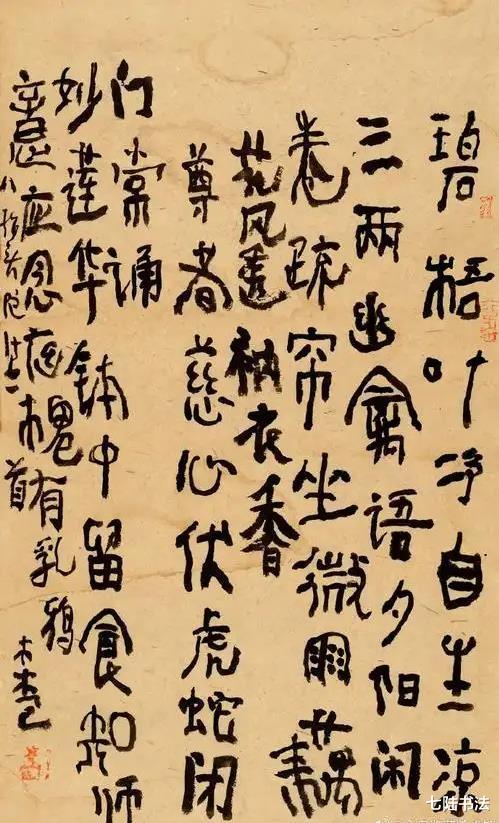 碧梧叶净自生凉
三两幽禽语夕阳闲
卷疏帘坐微雨藕
花风透衲衣香
尊者慈心伏虎蛇闭
门常诵
妙莲华钵中留食知师
意应念病槐有乳鸦
八指头陀诗二首
七陆书法